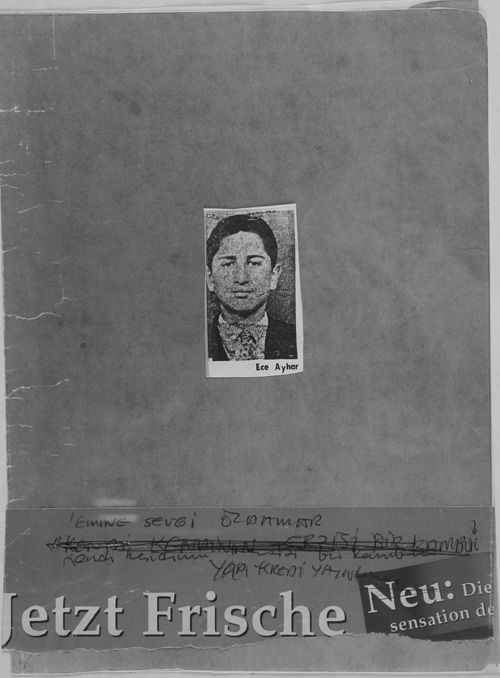 Ece Ayhan
EMİNE SEVGİ ÖZDAMAR
"KENDİ KENDİNİN TERZİSİ BİR KAMBUR
Kendi Kendinin Terzisi bir Kambur
YAPI KREDİ YAYINLARI
Jetzt Frische
Neu: Die
sensation de